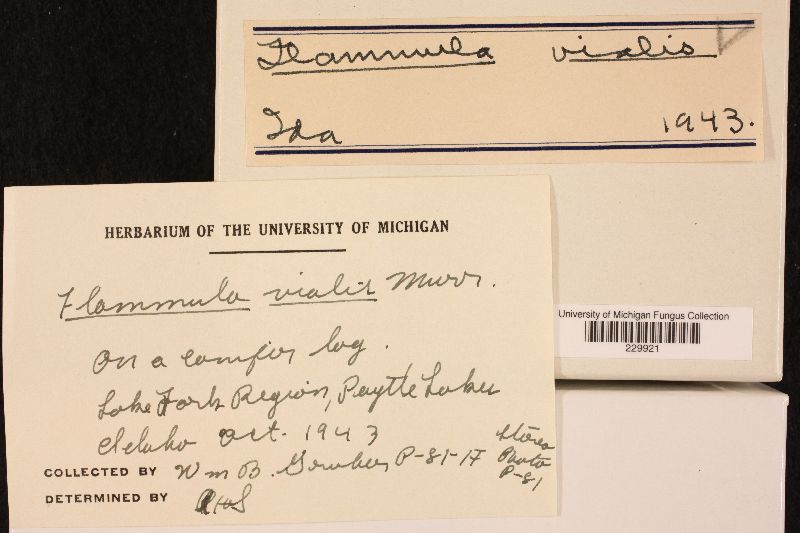 Flammula vialis
Ida 1943.
HERBARIUM OF THE UNIVERSITY OF MICHIGAN
Flammula vialis Murr.
On a conifer log.
Lake Fork Region, Payette Lakes
Idaho Oct. 1943
COLLECTED BY Wm B. Gruber P-81-17
Stereo
Photo
P-81
DETERMINED BY AHS
University of Michigan Fungus Collection
229921